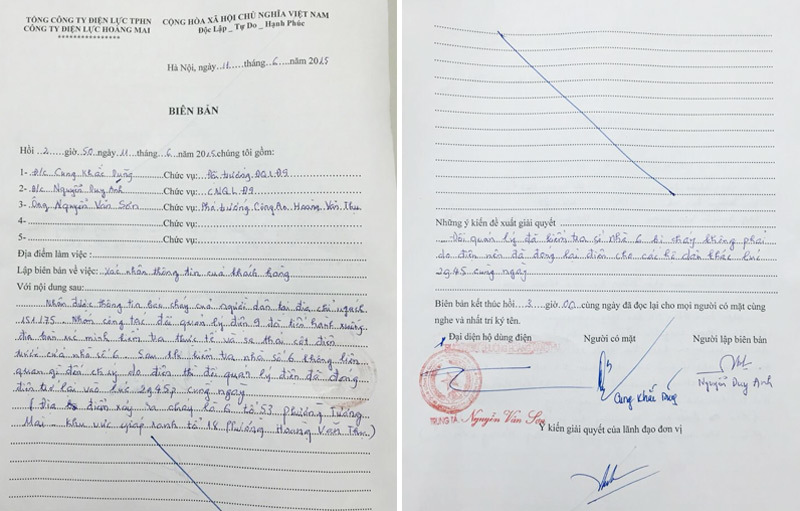 TỔNG CÔNG TY ĐIỆN LỰC TPHN
CÔNG TY ĐIỆN LỰC HOÀNG MAI
****************
CỘNG HÒA XÃ HỘI CHỦ NGHĨA VIỆT NAM
Độc Lập _ Tự Do _ Hạnh Phúc
Hà Nội, ngày 11 tháng 6 năm 2015
BIÊN BẢN
Hồi 2 giờ 50 ngày 11 tháng 6 năm 2015 chúng tôi gồm:
1- Đ/c Cung Khắc Dụng Chức vụ: Đội trưởng ĐQLĐ9
2- Đ/c Nguyễn Duy Anh Chức vụ: CNQLĐ9
3- Ông Nguyễn Văn Sơn Chức vụ: Phó trưởng Công An Hoàng Văn Thụ
4- Chức vụ:
5- Chức vụ:
Địa điểm làm việc :
Lập biên bản về việc: Xác nhận thông tin của khách hàng
Với nội dung sau:
Nhận được thông tin báo cháy của người dân tại địa chỉ ngách
151/75 Nhóm công tác đội quản lý điện 9 đã tiến hành xuống
địa bàn xác minh kiểm tra thực tế và sơ thái cột điện
trước cửa nhà số 6 Sau khi kiểm tra nhà số 6 không liên
quan gì đến cháy do điện thì đội quản lý điện đã đóng
điện trở lại vào lúc 2g45p cùng ngày
( Địa điểm xảy ra cháy là 6 tổ 53 phường Tương
Mai - khu vực giáp ranh tổ 18 Phường Hoàng Văn Thụ)
Những ý kiến đề xuất giải quyết
Đội quản lý đã kiểm tra số nhà 6 bị cháy không phải
do điện nên đã đóng lại điện cho các hộ dân khác lúc
2g45 cùng ngày
Biên bản kết thúc hồi 3 giờ 00 cùng ngày đã đọc lại cho mọi người có mặt cùng
nghe và nhất trí ký tên.
Đại diện hộ dùng điện Người có mặt Người lập biên bản
Cung Khắc Dụng
Nguyễn Duy Anh
TRUNG TÁ Nguyễn Văn Sơn
Ý kiến giải quyết của lãnh đạo đơn vị